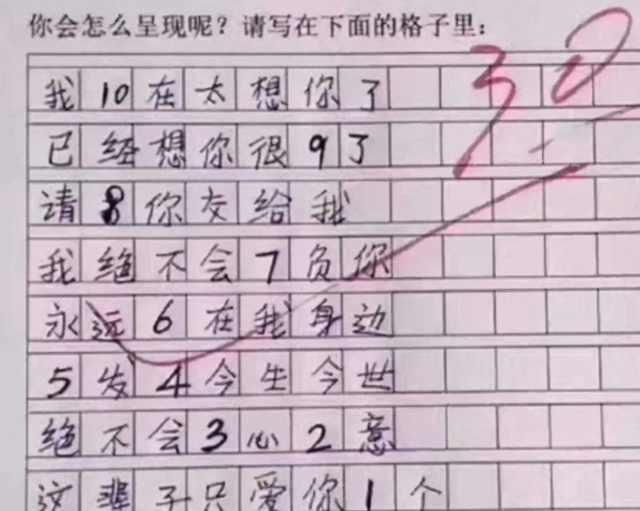 你会怎么呈现呢？请写在下面的格子里：
我10在太想你了
已经想你很9了
请8你交给我
我绝不会7负你
永远6在我身边
5发4今生今世
绝不会3心2意
这辈子只爱你1个